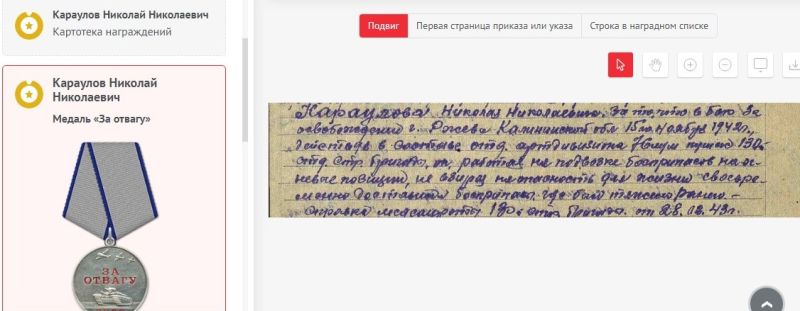 Караулов Николай Николаевич
Картотека награждений
Караулов Николай
Николаевич
Медаль «За отвагу»
ЗА
ОТВАГУ
Подвиг
Первая страница приказа или указа
Строка в наградном списке
Караулова Николая Николаевича, за то, что в бою за
освобождение г. Ржева Калининской обл 15го ноября 1942г.,
действуя в составе отд. артдивизиона 130
отд. стр. бригады, он, работая на подвозке боеприпасов на ог-
невые позиции, не взирая на опасность для жизни своевре-
менно доставлял боеприпасы где был тяжело ранен —
справка 130 отд. бригады от 28.12.43г.